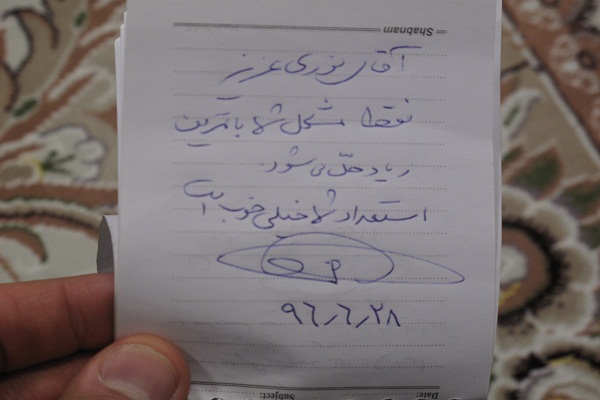 Shabnam
آقای نوری عزیز
فقط مشکل شما با تمرین
زیاد حلّ می‌شود.
استعداد شما خیلی خوب است
۹۶/۶/۲۸
Date:
Subject: